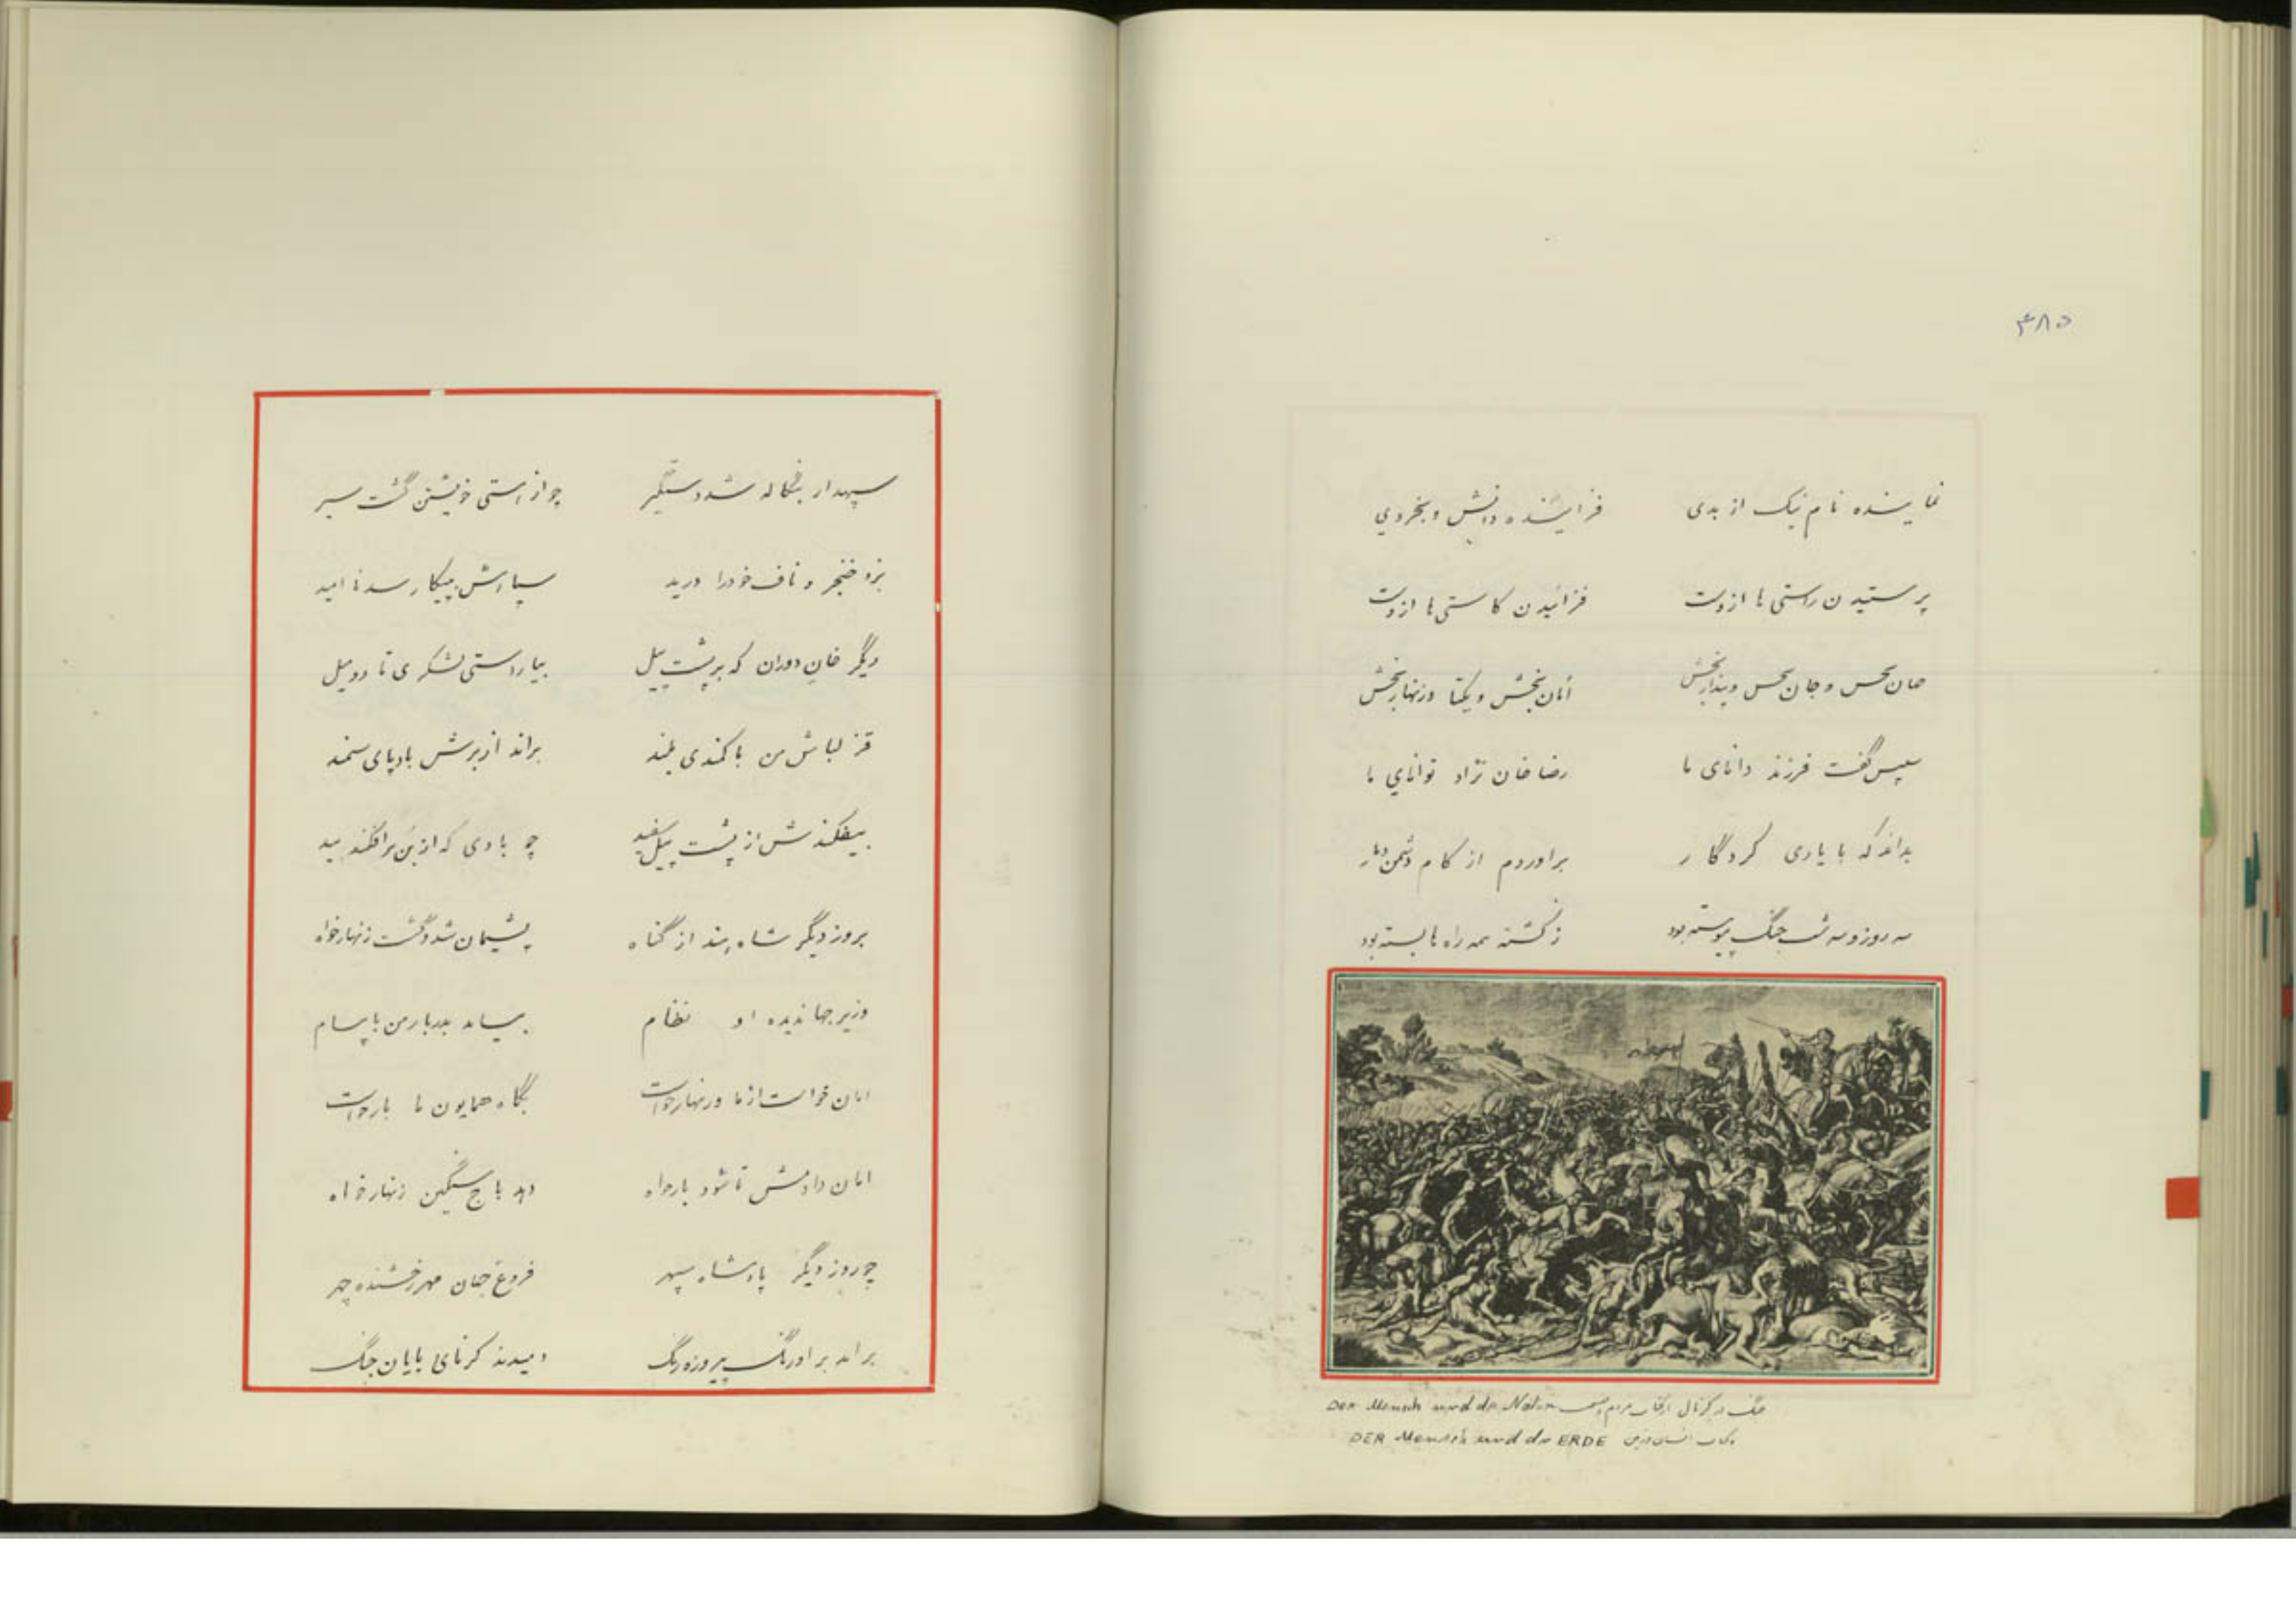 ۴۸۵
نماینده نام نیک از بدی فزاینده دانش و بخردی
پرستیدن راستی ها ازوست فزائیدن کاستی ها ازوست
جان بخش و پندار بخش امان بخش و یکتا و زنهار بخش
سپس گفت فرزند دانای ما رضا خان نژاد توانای ما
بداند که با یاری کردگار براوردم از کام دشمن دمار
سه روز و سه شب جنگ پیوسته بود ز کشته همه راه ها بسته بود
جنگ در کرنال از کتاب مردم و DER Mensch und die Natur
و کتاب انسان و زمین DER Mensch und die ERDE
سپهدار بنگاله شد دستگیر چو از هستی خویشتن گشت سیر
بزد خنجر و ناف خود را درید سپاهش ز پیکار شد نا امید
دیگر خان دوران که بر پشت پیل بیاراستی لشکری تا دو میل
قزلباش من با کمندی بلند براند از برش بادپای سمند
بیفکندش از پشت پیل سفید چو بادی که از بن برافکند بید
بروز دیگر شاه هند از گناه پشیمان شد و گشت زنهار خواه
وزیر جهاندیده او نظام بیامد بدربار من با پیام
امان خواست از ما و زنهار خواست بگاه همایون ما بار خواست
امان دادمش تا شود بار خواه دهد باج سنگین زنهار خواه
چو روز دیگر پادشاه سپهر فروغ جهان مهر رخشنده چهر
برامد بر اورنگ پیروزه رنگ دمیدند کرنای پایان جنگ